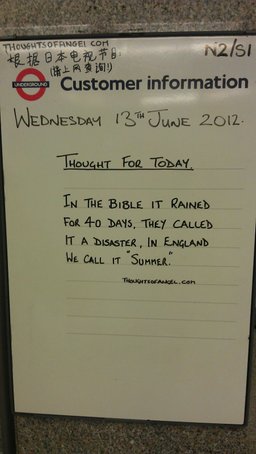 THOUGHTSOFANGEL.COM
根据日本电视节目.
(请上网查询!)
N2/S1
UNDERGROUND
Customer information
WEDNESDAY 13TH JUNE 2012.
THOUGHT FOR TODAY.
IN THE BIBLE IT RAINED
FOR 40 DAYS, THEY CALLED
IT A DISASTER, IN ENGLAND
WE CALL IT "SUMMER."
THOUGHTSOFANGEL.COM